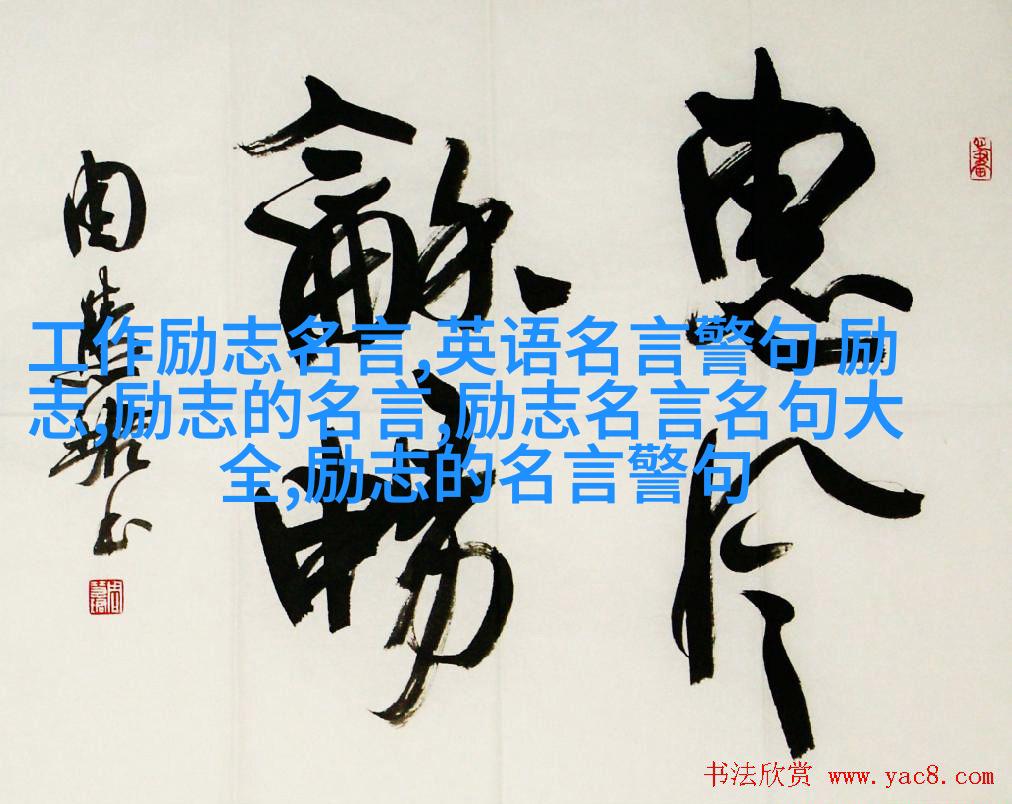 惠风
龢暢
周慧珺书
工作励志名言,英语名言警句 励
志,励志的名言,励志名言名句大
全,励志的名言警句
书法欣赏 www.yac8.com